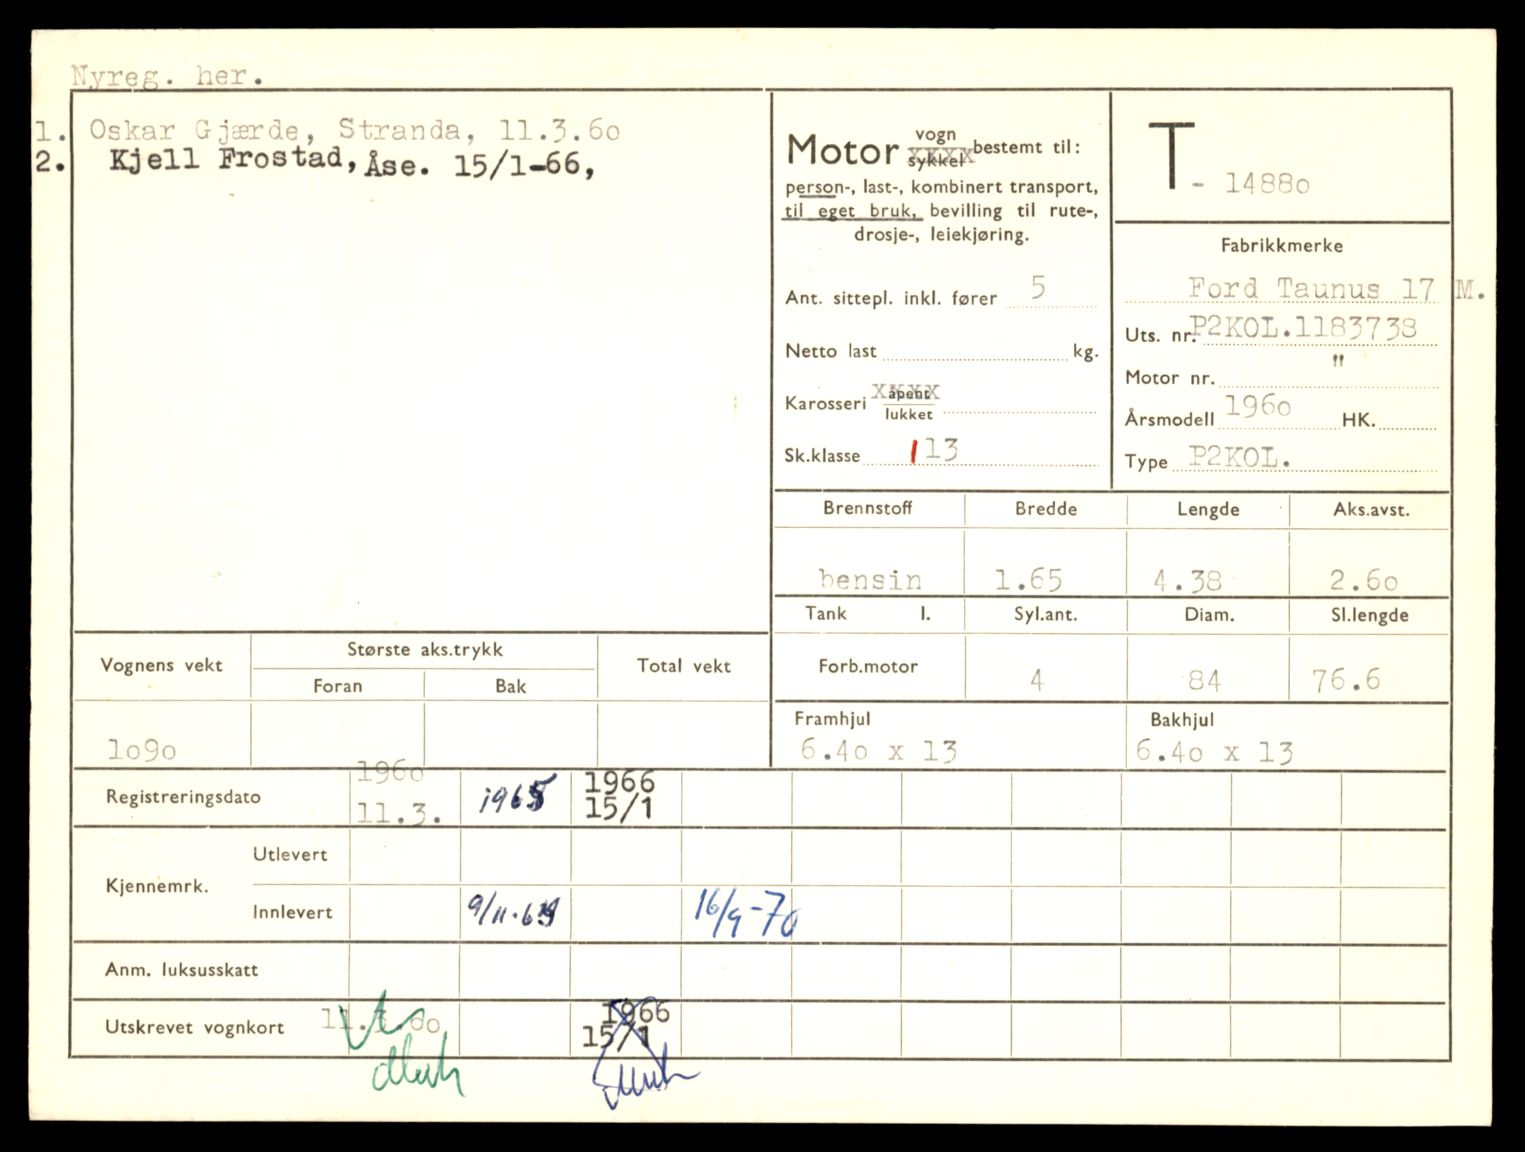 Nyreg. her.
1. Oskar Gjærde, Stranda, 11.3.60
2. Kjell Frostad, Åse. 15/1-66,
Motor vogn sykkel bestemt til:
person-, last-, kombinert transport,
til eget bruk, bevilling til rute-,
drosje-, leiekjøring.
Ant. sittepl. inkl. fører 5
Netto last kg.
Karosseri åpent lukket
Sk.klasse 113
T - 14880
Fabrikkmerke
Ford Taunus 17 M.
Uts. nr. P2KOL.1183738
Motor nr. "
Årsmodell 1960 HK.
Type P2KOL.
Brennstoff Bredde Lengde Aks.avst.
bensin 1.65 4.38 2.60
Tank l. Syl.ant. Diam. Sl.lengde
Forb.motor 4 84 76.6
Framhjul Bakhjul
6.40 x 13 6.40 x 13
Vognens vekt Største aks.trykk Total vekt
Foran Bak
1090
Registreringsdato 1960 11.3. 1965 1966 15/1
Kjennemrk.
Utlevert
Innlevert 9/11.65 16/9-70
Anm. luksusskatt
Utskrevet vognkort 11.3.60 1966 15/1